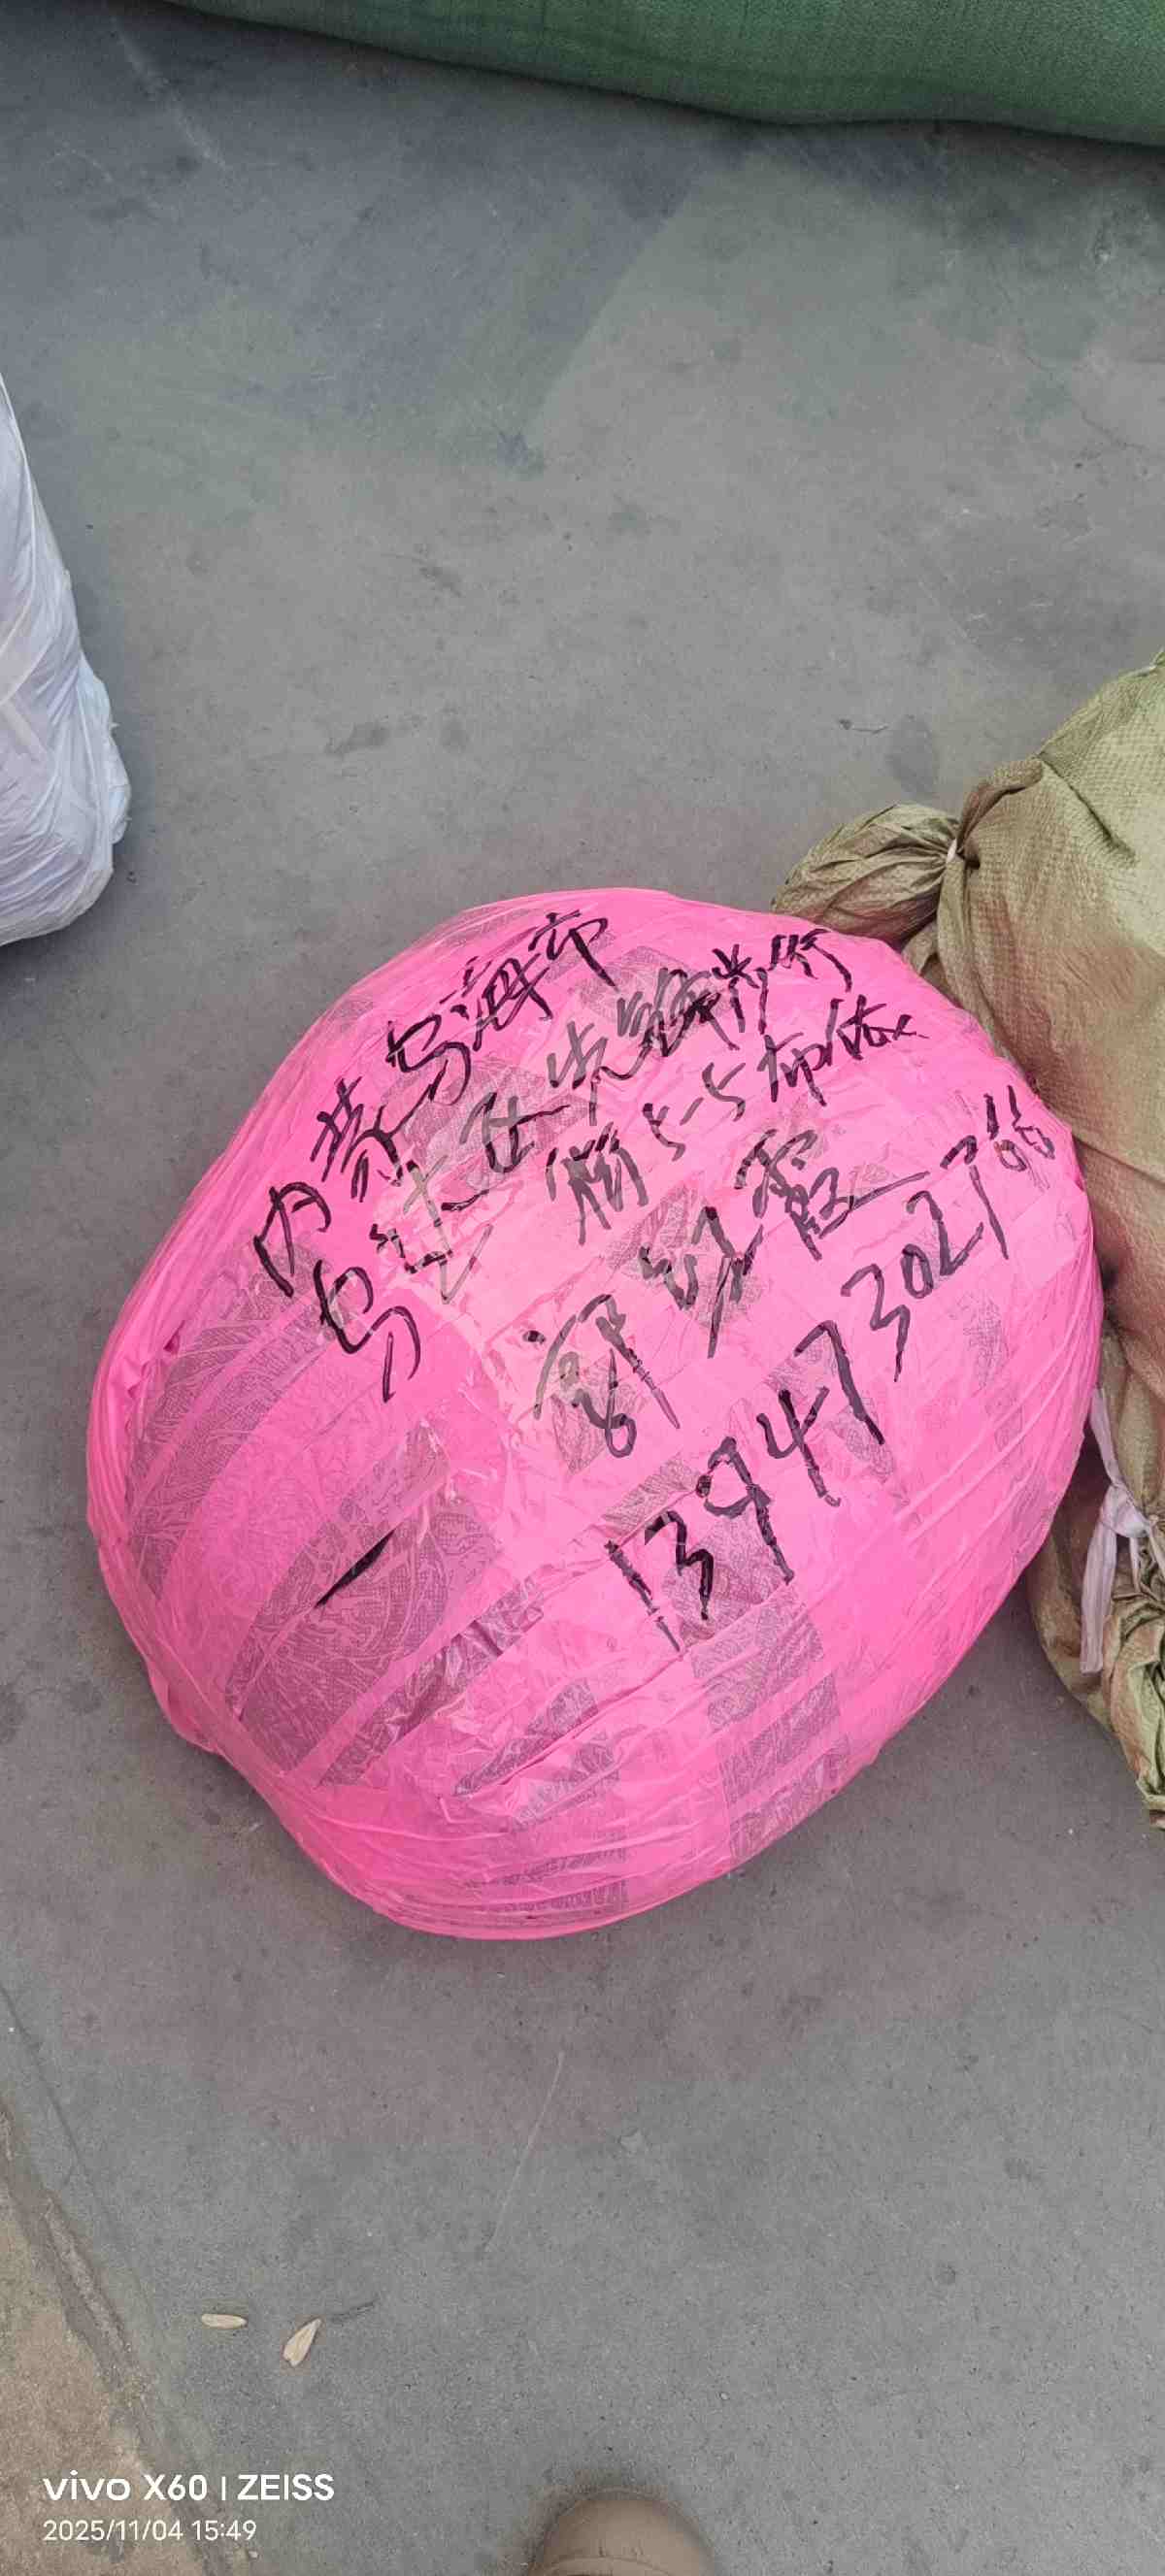 内蒙乌海市
乌达区先锋街
5-5布依
郭红霞
13947302766
vivo X60 | ZEISS
2025/11/04 15:49